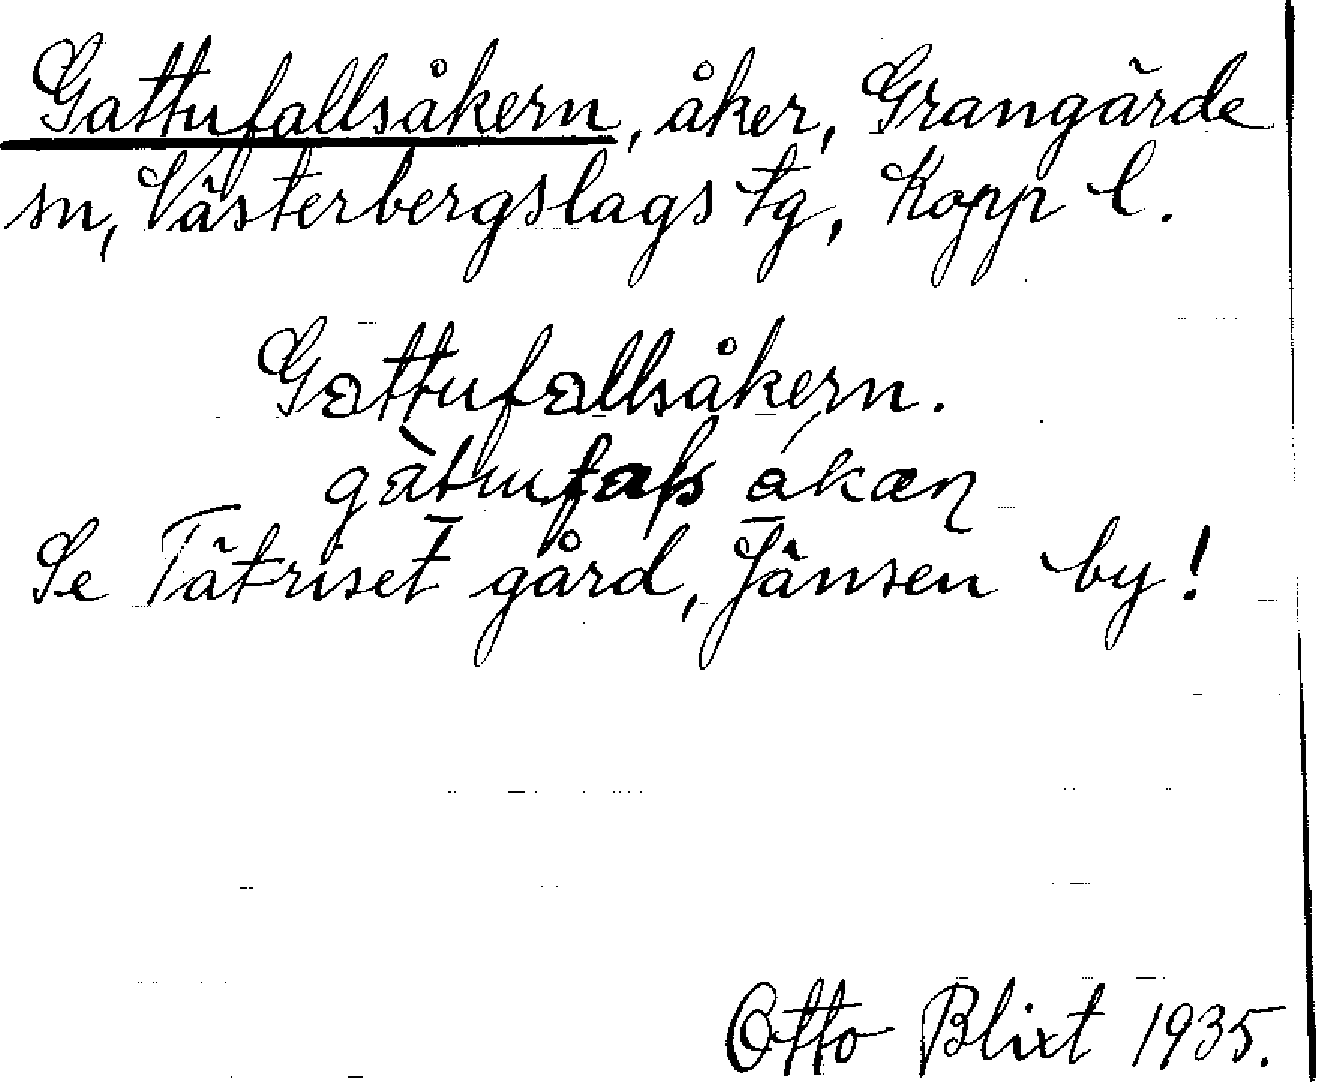 Gattufallsåkern, åker, Grangärde
sn, Västerbergslags tg, Kopp l.
Gattufallsåkern.
Se Tätriset gård, Jänsen by!
Otto Blixt 1935.